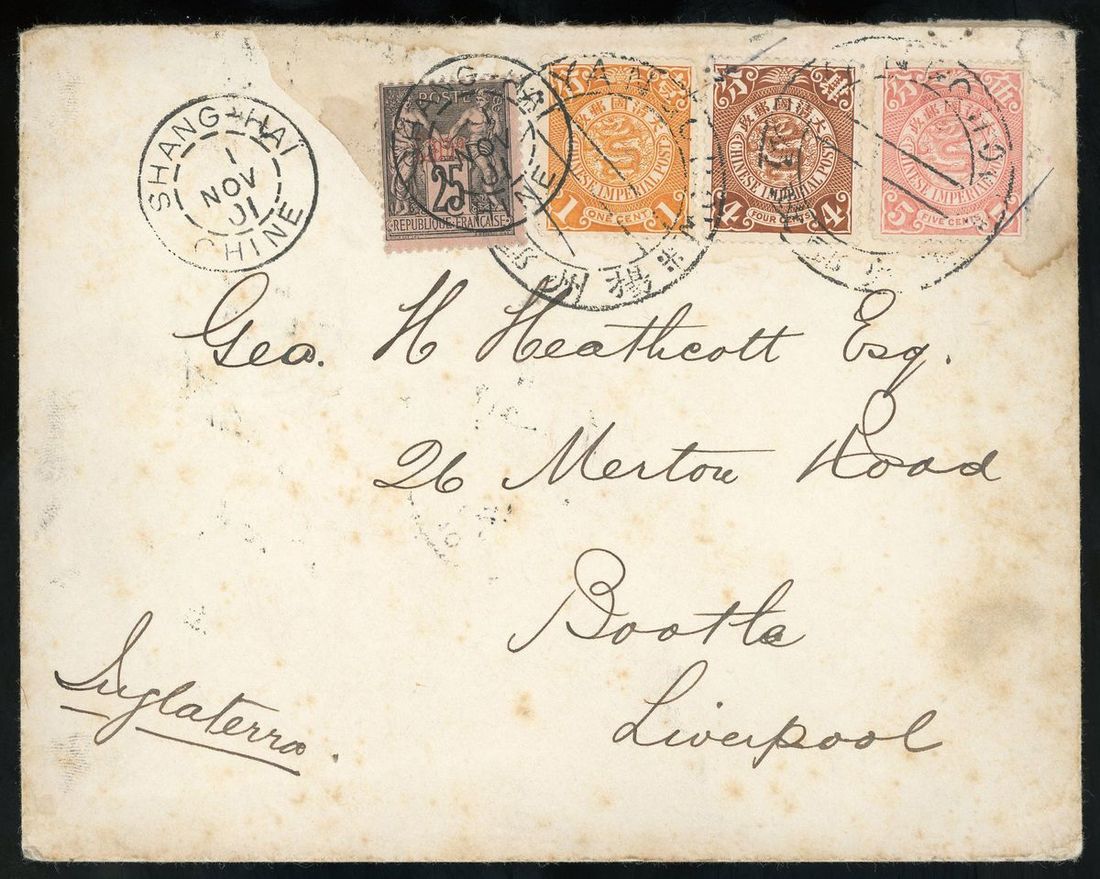 SHANG-HAÏ
1
NOV
01
CHINE
POSTE
25
REPUBLIQUE FRANÇAISE
大清國郵政
CHINESE IMPERIAL POST
1 ONE CENT 1
肆分
大清國郵政
CHINESE IMPERIAL POST
4 FOUR CENTS 4
伍分
CHINESE IMPERIAL POST
5 FIVE CENTS
Geo. H Heathcott Esq.
26 Merton Road
Bootle
Liverpool
Inglaterra.